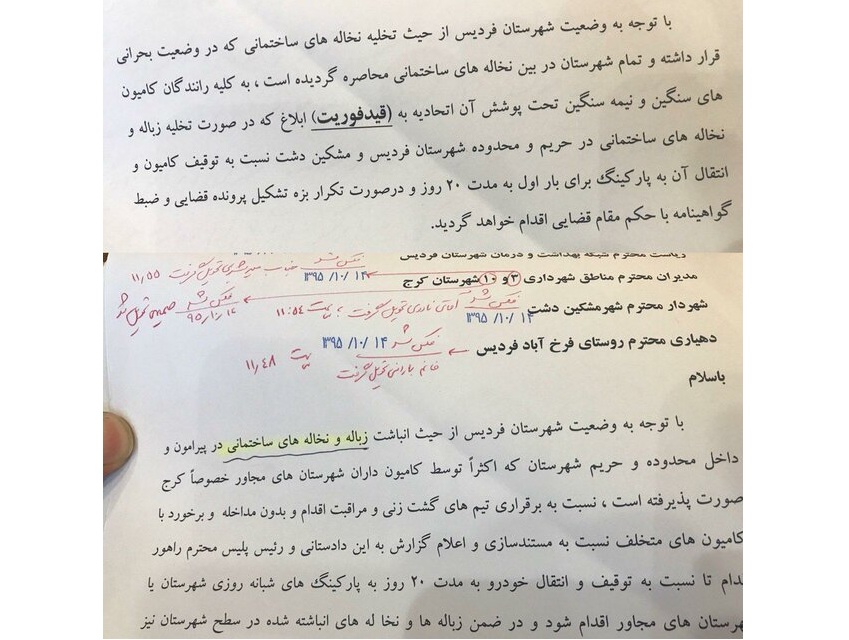 با توجه به وضعیت شهرستان فردیس از حیث تخلیه نخاله های ساختمانی که در وضعیت بحرانی
قرار داشته و تمام شهرستان در بین نخاله های ساختمانی محاصره گردیده است ، به کلیه رانندگان کامیون
های سنگین و نیمه سنگین تحت پوشش آن اتحادیه به (قیدفوریت) ابلاغ که در صورت تخلیه زباله و
نخاله های ساختمانی در حریم و محدوده شهرستان فردیس و مشکین دشت نسبت به توقیف کامیون و
انتقال آن به پارکینگ برای بار اول به مدت ۲۰ روز و درصورت تکرار بزه تشکیل پرونده قضایی و ضبط
گواهینامه با حکم مقام قضایی اقدام خواهد گردید.
ریاست محترم شبکه بهداشت و درمان شهرستان فردیس
فکس شد ۱۳۹۵/۱۰/۱۴ تحویل گرفت ۱۱:۵۵
مدیران محترم مناطق شهرداری ۳ و ۱۰ شهرستان کرج
فکس شد
شهردار محترم شهرمشکین دشت ۱۳۹۵/۱۰/۱۴ فکس شد آقای نادری تحویل گرفت ۱۱:۵۴
دهیاری محترم روستای فرخ آباد فردیس ۱۳۹۵/۱۰/۱۴ فکس شد
خانم بارانی تحویل گرفت ۱۱:۴۸
باسلام
با توجه به وضعیت شهرستان فردیس از حیث انباشت زباله و نخاله های ساختمانی در پیرامون و
داخل محدوده و حریم شهرستان که اکثراً توسط کامیون داران شهرستان های مجاور خصوصاً کرج
صورت پذیرفته است ، نسبت به برقراری تیم های گشت زنی و مراقبت اقدام و بدون مداخله و برخورد با
کامیون های متخلف نسبت به مستندسازی و اعلام گزارش به این دادستانی و رئیس پلیس محترم راهور
دام تا نسبت به توقیف و انتقال خودرو به مدت ۲۰ روز به پارکینگ های شبانه روزی شهرستان یا
هرستان های مجاور اقدام شود و در ضمن زباله ها و نخا له های انباشته شده در سطح شهرستان نیز